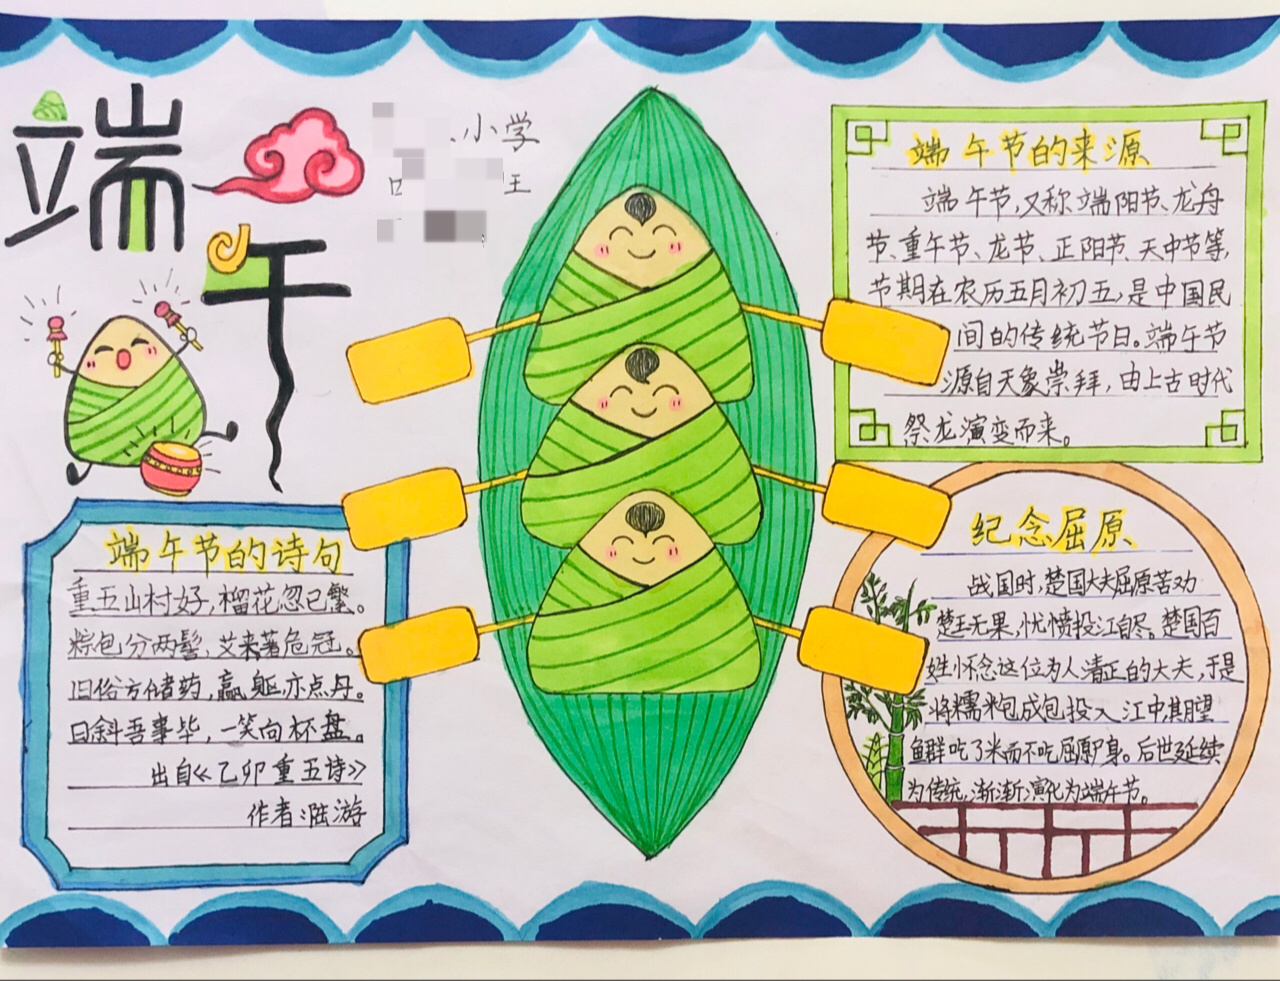 端午
小学
王
端午节的诗句
重五山村好，榴花忽已繁。
粽包分两髻，艾束著危冠。
旧俗方储药，羸躯亦点丹。
日斜吾事毕，一笑向杯盘。
出自《乙卯重五诗》
作者：陆游
端午节的来源
端午节，又称端阳节、龙舟
节、重午节、龙节、正阳节、天中节等，
节期在农历五月初五，是中国民
间的传统节日。端午节
源自天象崇拜，由上古时代
祭龙演变而来。
纪念屈原
战国时，楚国大夫屈原苦劝
楚王无果，忧愤投江自尽。楚国百
姓怀念这位为人清正的大夫，于是
将糯米包成包投入江中，期望
鱼群吃了米而不吃屈原尸身。后世延续
为传统，渐渐演化为端午节。